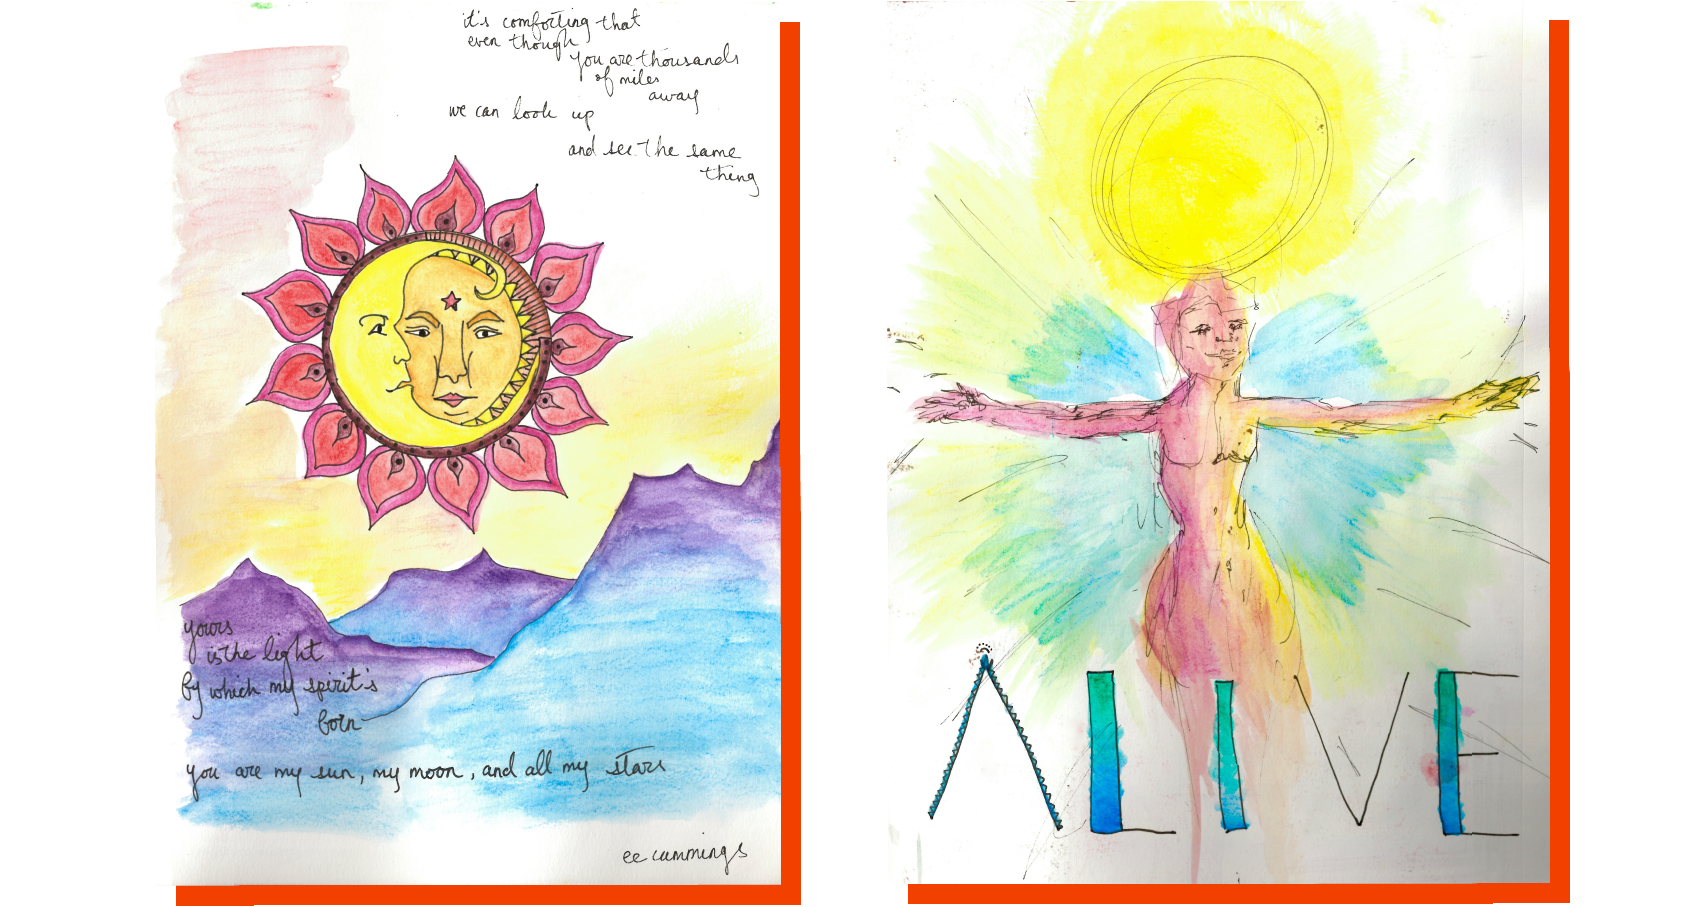 it's comforting that
even though
you are thousands
of miles
away
we can look up
and see the same
thing
yours
is the light
by which my spirit's
born
you are my sun, my moon, and all my stars
ee cummings
ALIVE